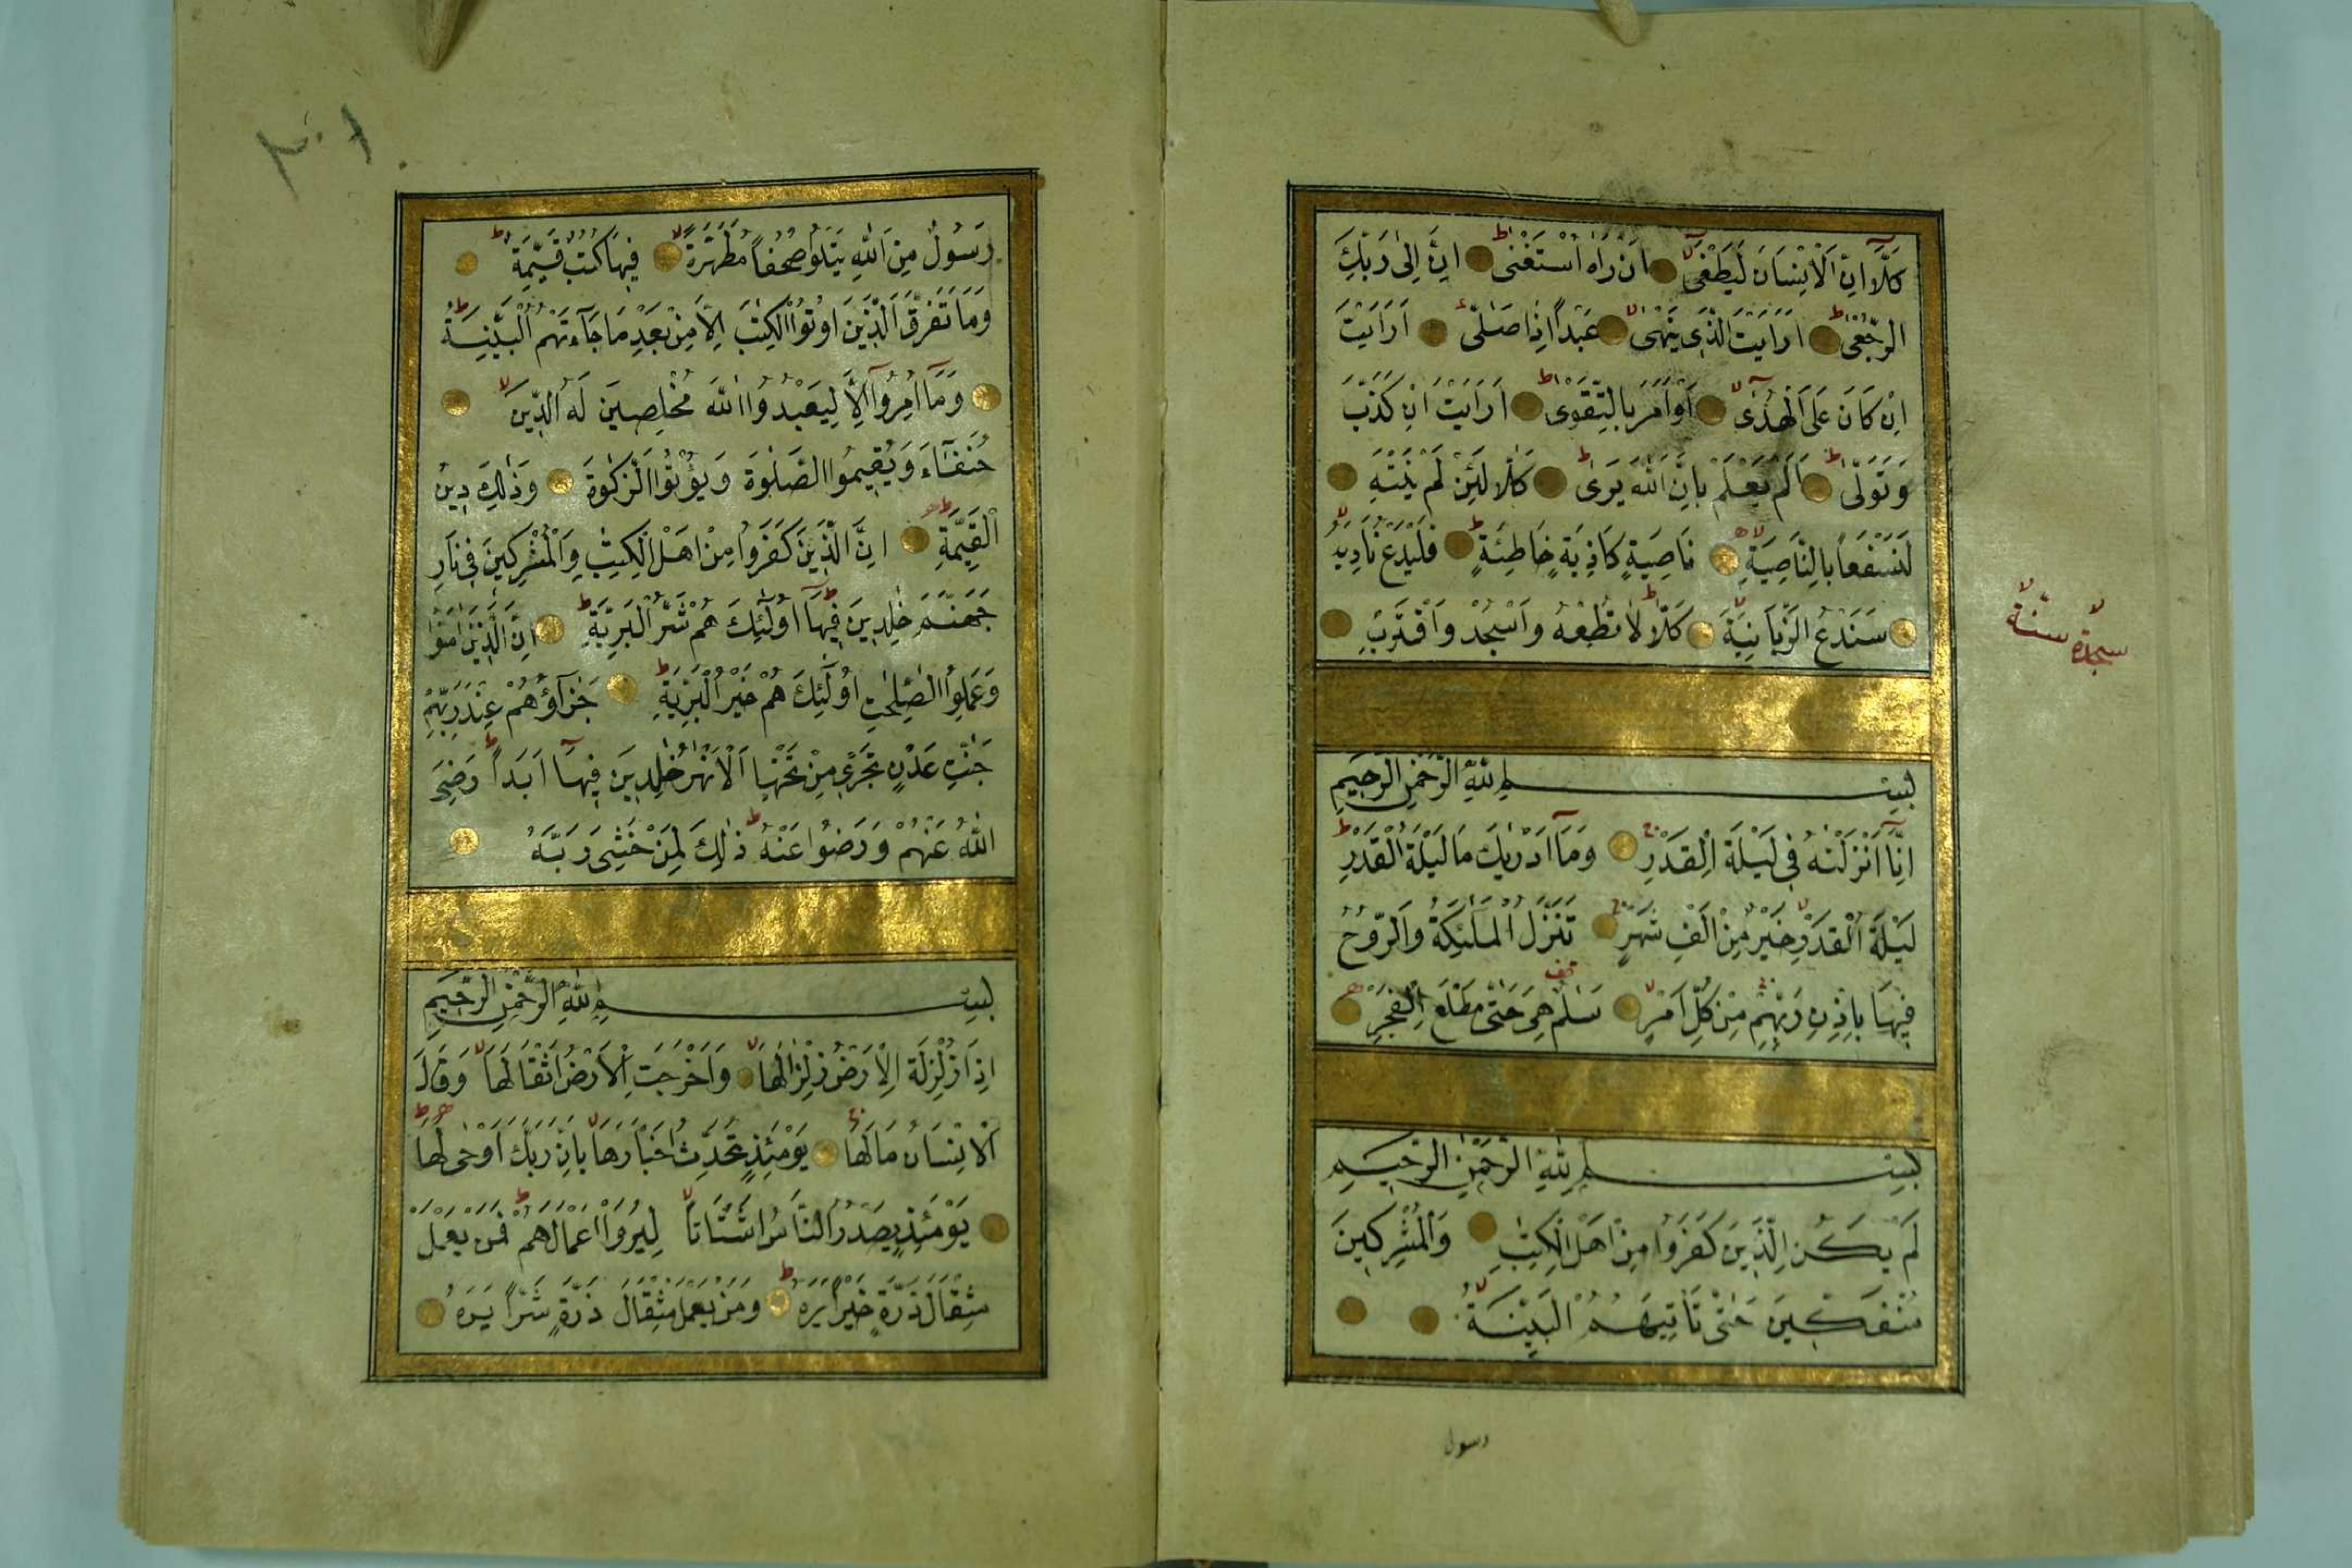 كَلَّا اِنَّ الْاِنْسَانَ لَيَطْغٰى اَنْ رَاٰهُ اسْتَغْنٰى اِنَّ اِلٰى رَبِّكَ
الرُّجْعٰى اَرَاَيْتَ الَّذِى يَنْهٰى عَبْدًا اِذَا صَلّٰى اَرَاَيْتَ
اِنْ كَانَ عَلَى الْهُدٰى اَوْ اَمَرَ بِالتَّقْوٰى اَرَاَيْتَ اِنْ كَذَّبَ
وَتَوَلّٰى اَلَمْ يَعْلَمْ بِاَنَّ اللّٰهَ يَرٰى كَلَّا لَئِنْ لَمْ يَنْتَهِ
لَنَسْفَعًا بِالنَّاصِيَةِ نَاصِيَةٍ كَاذِبَةٍ خَاطِئَةٍ فَلْيَدْعُ نَادِيَهُ
سَنَدْعُ الزَّبَانِيَةَ كَلَّا لَا تُطِعْهُ وَاسْجُدْ وَاقْتَرِبْ
سجدة سنة
بِسْمِ اللّٰهِ الرَّحْمٰنِ الرَّحِيمِ
اِنَّا اَنْزَلْنٰهُ فِى لَيْلَةِ الْقَدْرِ وَمَا اَدْرٰيكَ مَا لَيْلَةُ الْقَدْرِ
لَيْلَةُ الْقَدْرِ خَيْرٌ مِنْ اَلْفِ شَهْرٍ تَنَزَّلُ الْمَلٰئِكَةُ وَالرُّوحُ
فِيهَا بِاِذْنِ رَبِّهِمْ مِنْ كُلِّ اَمْرٍ سَلٰمٌ هِىَ حَتّٰى مَطْلَعِ الْفَجْرِ
بِسْمِ اللّٰهِ الرَّحْمٰنِ الرَّحِيمِ
لَمْ يَكُنِ الَّذِينَ كَفَرُوا مِنْ اَهْلِ الْكِتٰبِ وَالْمُشْرِكِينَ
مُنْفَكِّينَ حَتّٰى تَاْتِيَهُمُ الْبَيِّنَةُ
رسول
٣٠١
رَسُولٌ مِنَ اللّٰهِ يَتْلُو صُحُفًا مُطَهَّرَةً فِيهَا كُتُبٌ قَيِّمَةٌ
وَمَا تَفَرَّقَ الَّذِينَ اُوتُوا الْكِتٰبَ اِلَّا مِنْ بَعْدِ مَا جَآءَتْهُمُ الْبَيِّنَةُ
وَمَآ اُمِرُوآ اِلَّا لِيَعْبُدُوا اللّٰهَ مُخْلِصِينَ لَهُ الدِّينَ
حُنَفَآءَ وَيُقِيمُوا الصَّلٰوةَ وَيُؤْتُوا الزَّكٰوةَ وَذٰلِكَ دِينُ
الْقَيِّمَةِ اِنَّ الَّذِينَ كَفَرُوا مِنْ اَهْلِ الْكِتٰبِ وَالْمُشْرِكِينَ فِى نَارِ
جَهَنَّمَ خٰلِدِينَ فِيهَآ اُولٰئِكَ هُمْ شَرُّ الْبَرِيَّةِ اِنَّ الَّذِينَ اٰمَنُوا
وَعَمِلُوا الصّٰلِحٰتِ اُولٰئِكَ هُمْ خَيْرُ الْبَرِيَّةِ جَزَآؤُهُمْ عِنْدَ رَبِّهِمْ
جَنّٰتُ عَدْنٍ تَجْرِى مِنْ تَحْتِهَا الْاَنْهٰرُ خٰلِدِينَ فِيهَآ اَبَدًا رَضِىَ
اللّٰهُ عَنْهُمْ وَرَضُوا عَنْهُ ذٰلِكَ لِمَنْ خَشِىَ رَبَّهُ
بِسْمِ اللّٰهِ الرَّحْمٰنِ الرَّحِيمِ
اِذَا زُلْزِلَةِ الْاَرْضُ زِلْزَالَهَا وَاَخْرَجَتِ الْاَرْضُ اَثْقَالَهَا وَقَالَ
الْاِنْسَانُ مَالَهَا يَوْمَئِذٍ تُحَدِّثُ اَخْبَارَهَا بِاَنَّ رَبَّكَ اَوْحٰى لَهَا
يَوْمَئِذٍ يَصْدُرُ النَّاسُ اَشْتَاتًا لِيُرَوْا اَعْمَالَهُمْ فَمَنْ يَعْمَلْ
مِثْقَالَ ذَرَّةٍ خَيْرًا يَرَهُ وَمَنْ يَعْمَلْ مِثْقَالَ ذَرَّةٍ شَرًّا يَرَهُ